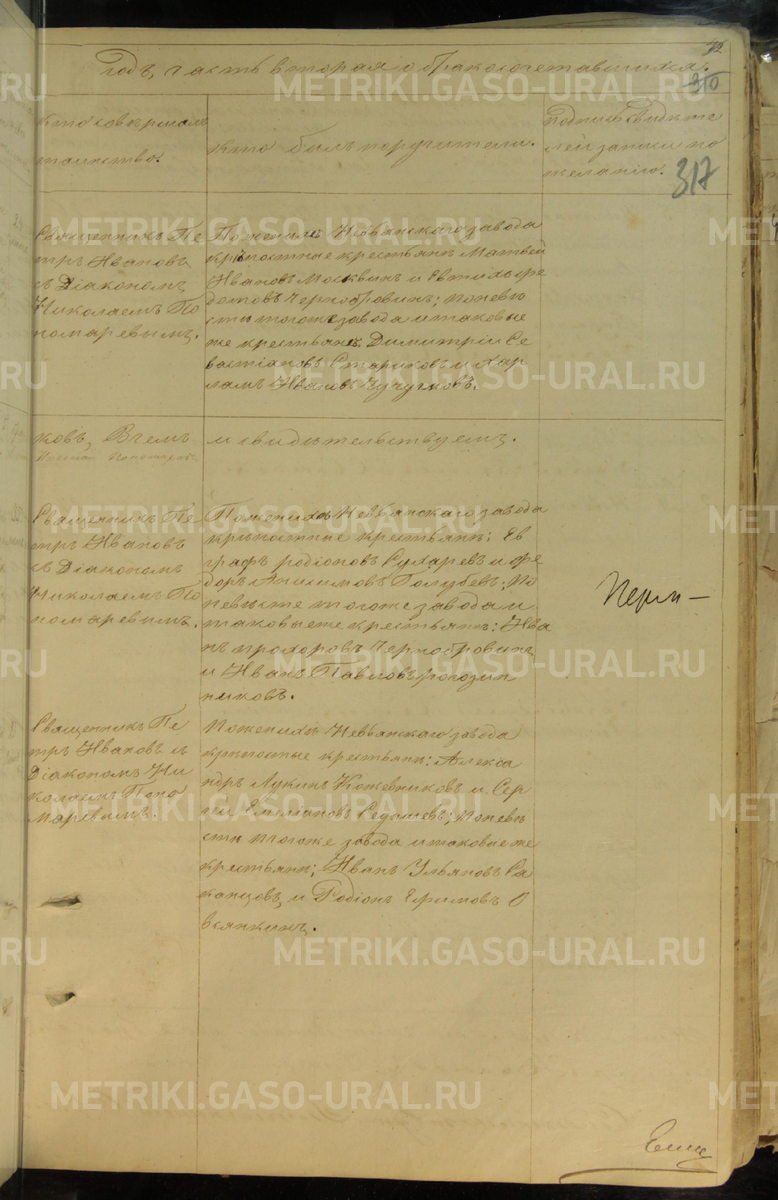 72
Годъ, часть вторая о бракосочетавшихся.
310
Кто совершалъ
таинство.
Кто былъ поручители.
подпись свидѣте
лей записи по
желанію.
317
Священникъ Пе
тръ Ивановъ
съ Діакономъ
Николаемъ По
номаревымъ.
Поженихѣ Невьянскаго завода
крѣпостные крестьяне Матвей
Ивановъ Москвинъ и Евтихъ Фе
дотовъ Чернобровинъ; поневѣ
стѣ тогоже завода итаковые
же крестьяне Димитрій Се
вастіановъ Стариковъ и Хар
лампъ Ивановъ
ковъ, Вчемъ
и свидѣтельствуемъ.
Священникъ Пе
тръ Ивановъ
съ Діакономъ
Николаемъ По
номаревымъ.
Поженихѣ Невьянскаго завода
крѣпостные крестьяне: Ев
графъ родіоновъ Сухаревъ и Фе
доръ Анисимовъ Голубевъ; По
невѣсте тогоже завода и
таковыеже крестьяне: Ива
нъ прохоровъ Чернобровинъ
и Иванъ Павловъ рогозин
никовъ.
Перм—
Священникъ Пе
тръ Ивановъ и съ
Діакономъ Ни
колаемъ Поно
маревымъ.
Поженихѣ Невьянскаго завода
крѣпостные крестьяне: Алекса
ндръ Лукинъ Кожевниковъ и Сер
гей Емеліановъ Седышевъ; поневѣ
стѣ тогоже завода итаковыеже
крестьяне; Иванъ Ульяновъ Са
канцовъ, и Родіонъ Ефимовъ О
всянкинъ.
METRIKI.GASO-URAL.RU